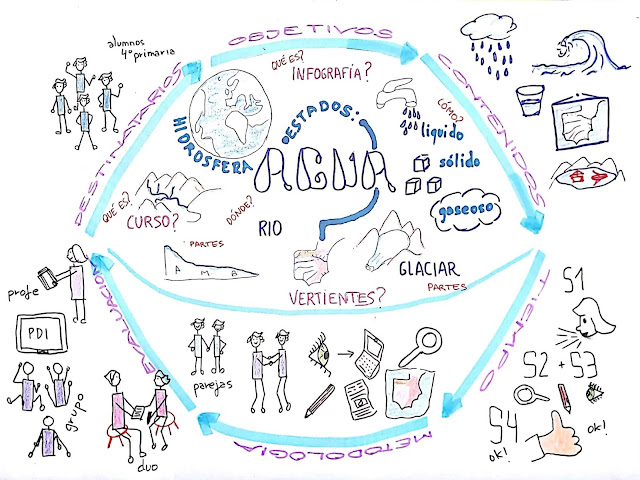 alumnos
4º primaria
DESTINATARIOS
OBJETIVOS
CONTENIDOS
TIEMPO
METODOLOGIA
EVALUACIÓN
HIDRÓSFERA
QUÉ ES?
INFOGRAFÍA?
ESTADOS:
AGUA
CÓMO?
líquido
sólido
gaseoso
QUÉ ES?
CURSO?
DÓNDE?
RIO
PARTES
A M B
VERTIENTES?
GLACIAR
PARTES
profe
PDI
grupo
duo
parejas
S1
S2 + S3
S4
ok!
ok!